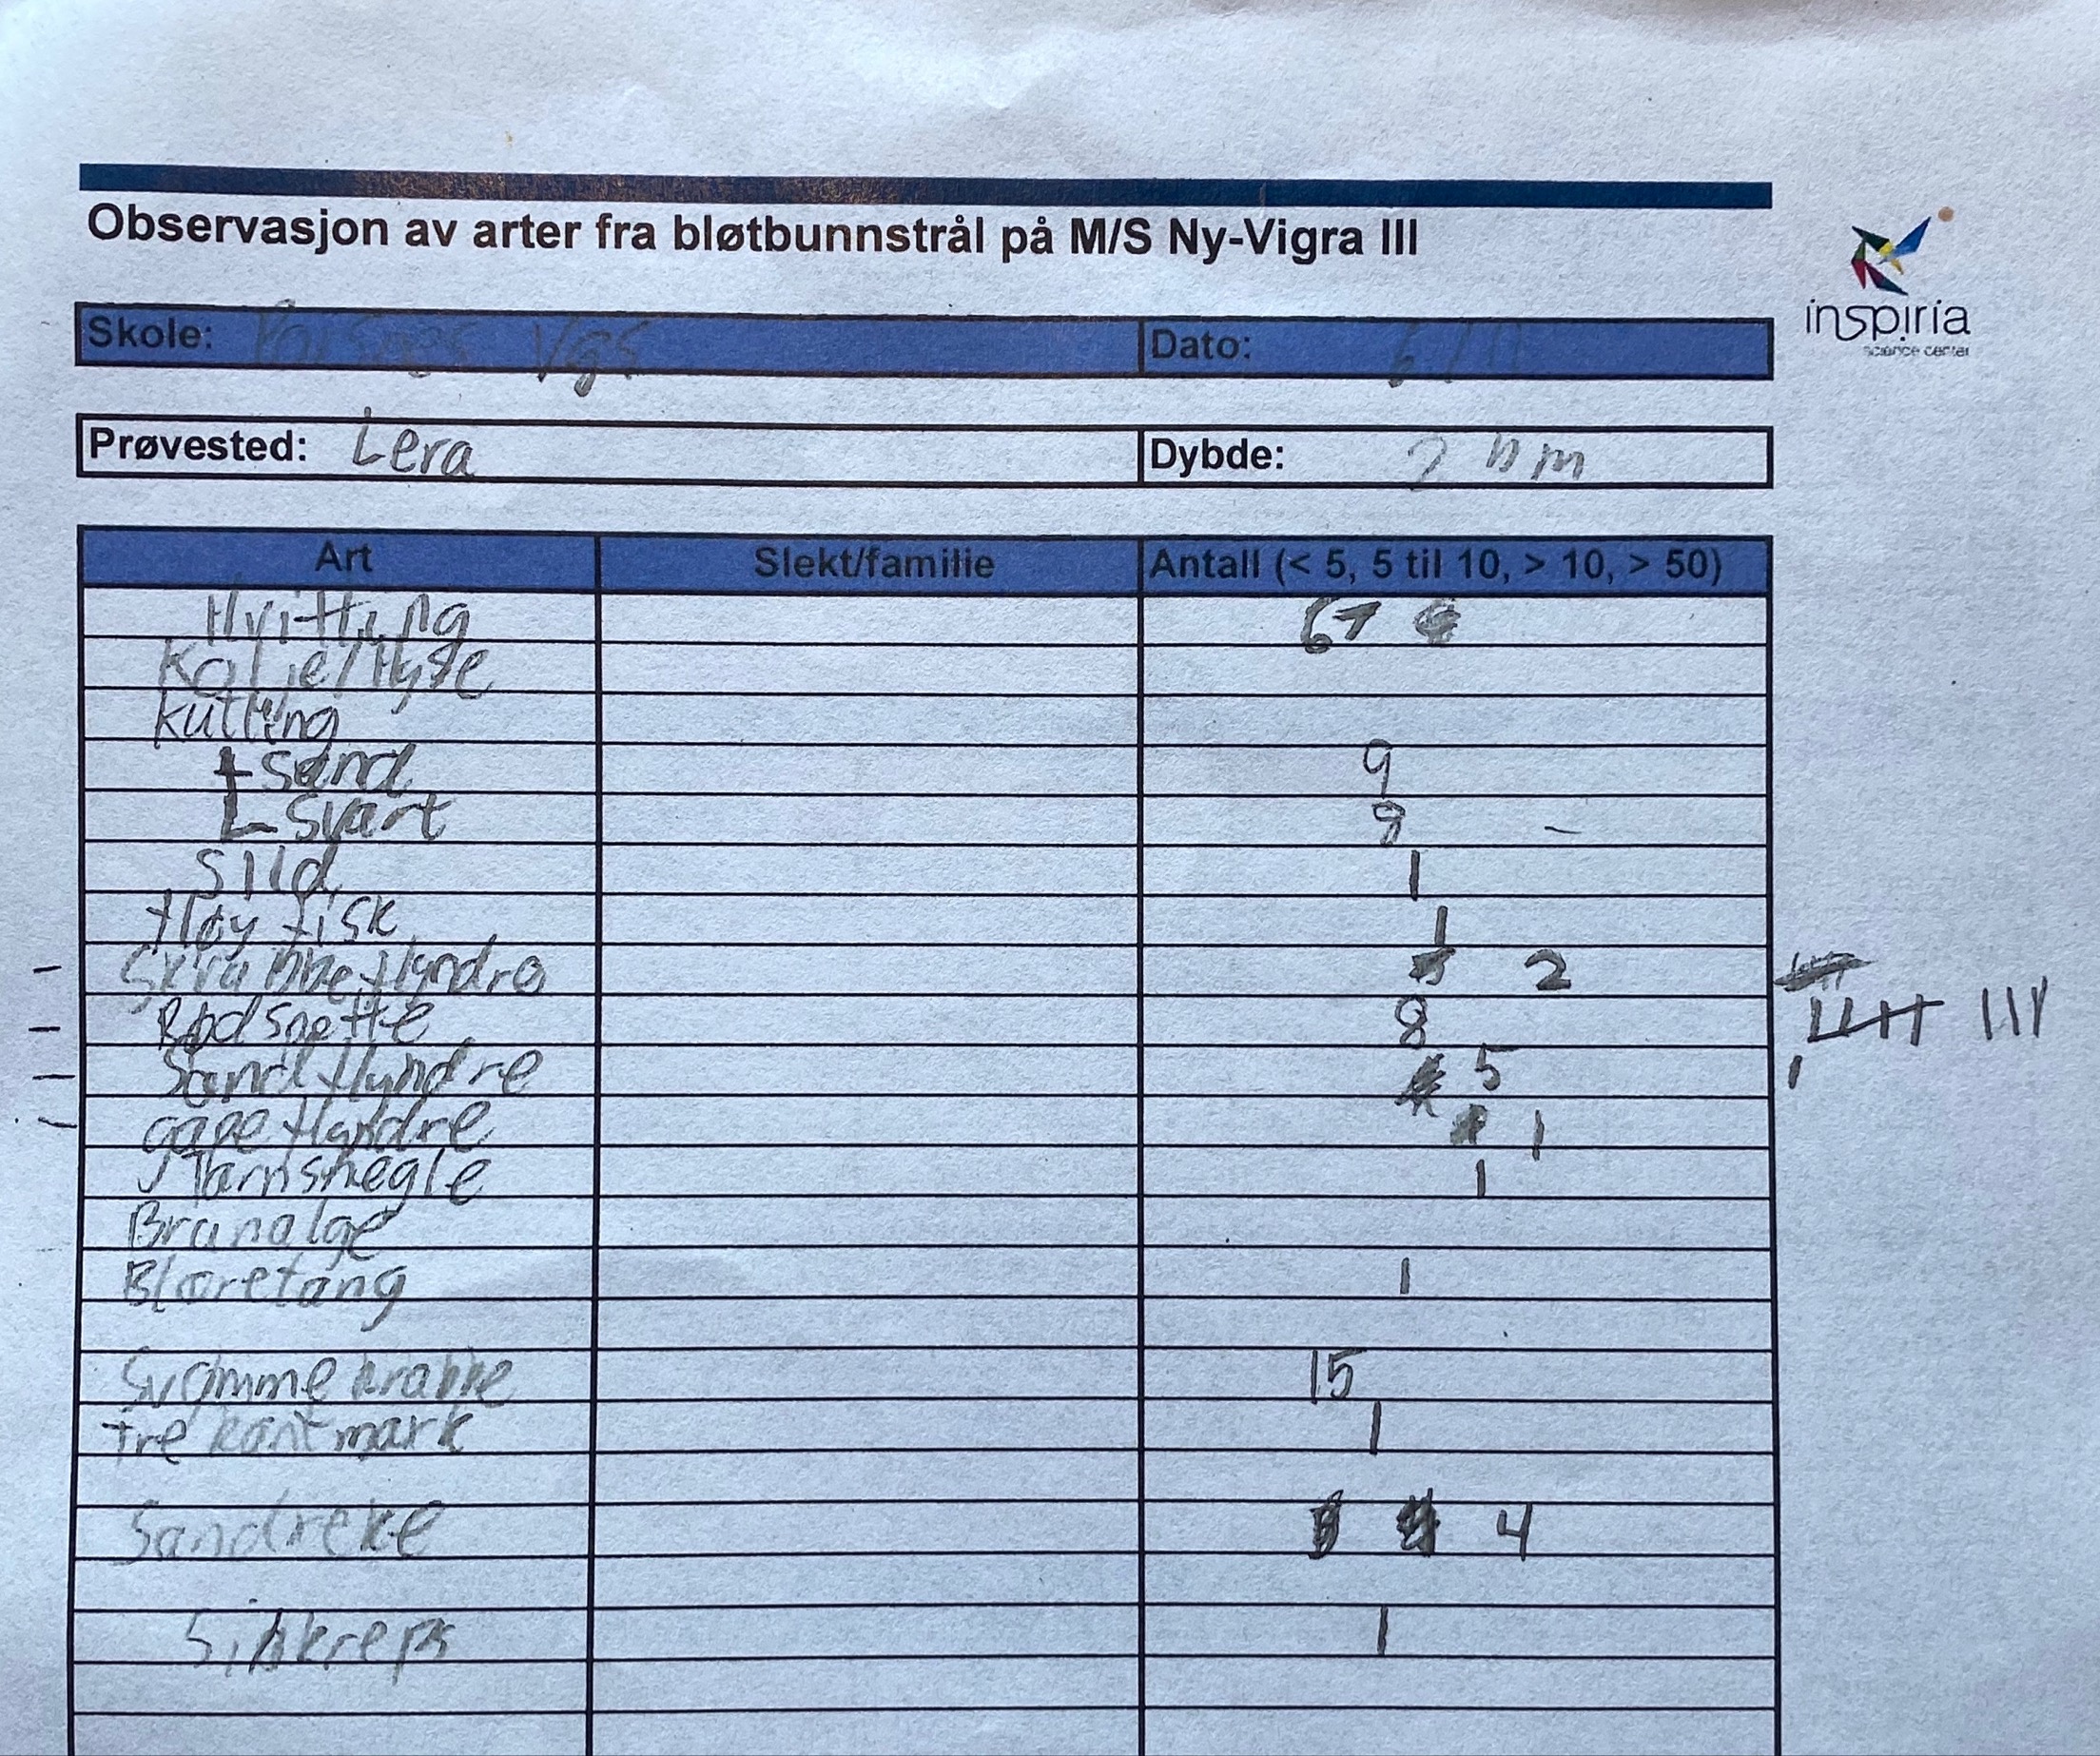 Observasjon av arter fra bløtbunnstrål på M/S Ny-Vigra III
inspiria
science center
Skole: Vgs Dato: 6/11
Prøvested: Lera Dybde: m
Art Slekt/familie Antall (< 5, 5 til 10, > 10, > 50)
Hvitting 67
Kolje/Hyse
Kutling
Sand 9
Svart 8
Sild 1
fløy fisk 1
Skrubbe flyndre 2
Rødspette 8
Sand flyndre 5
gape flyndre 1
Tårnsnegle 1
Brunalge
Blæretang 1
Svømme krabbe 15
Tre kant mark 1
Sandreke 4
Sikreps 1